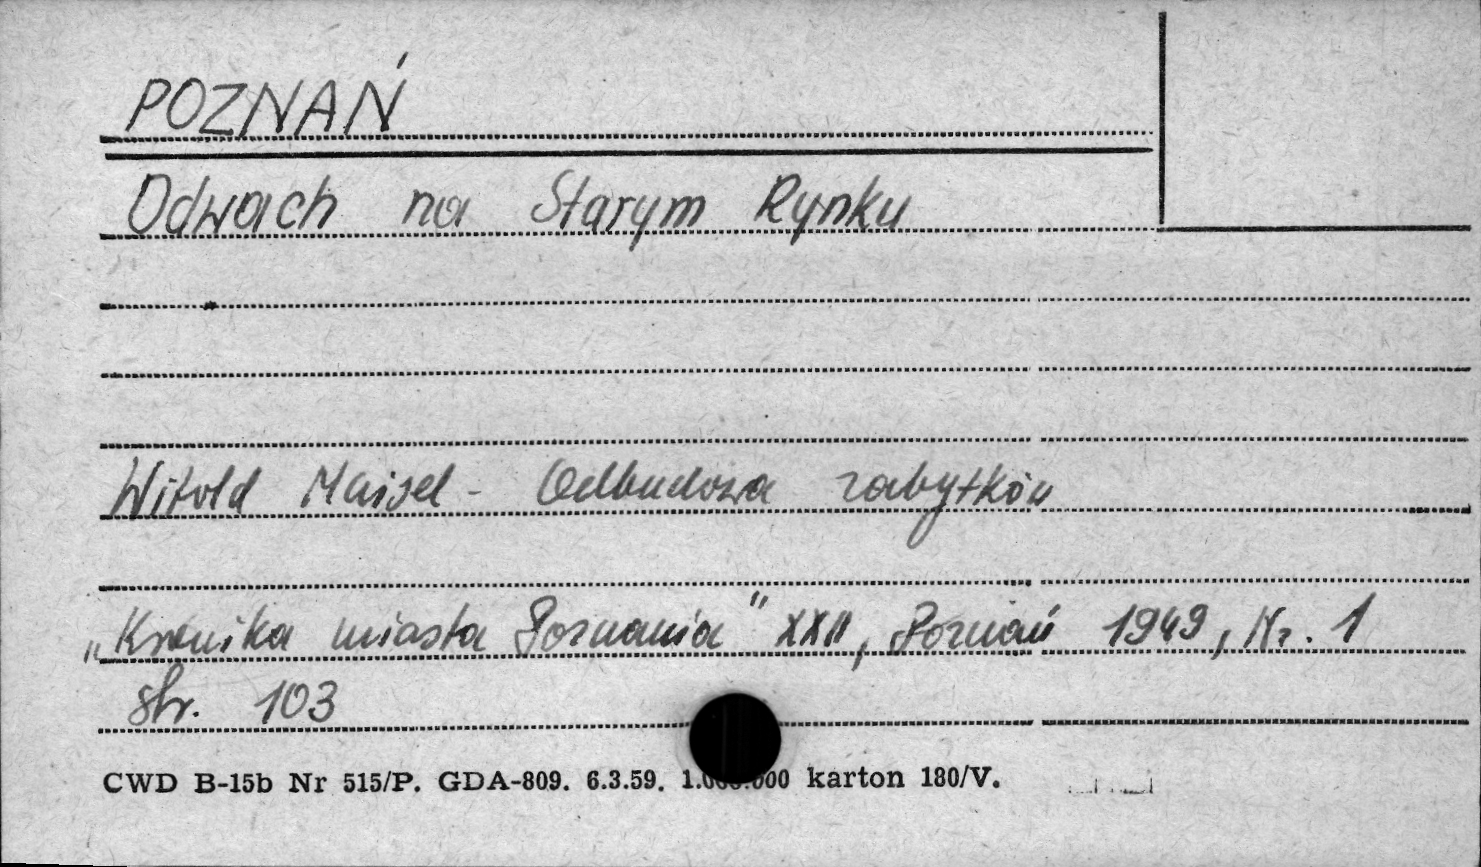 POZNAŃ
Odwach na Starym Rynku
Witold Maisel - Odbudowa zabytków
„Kronika miasta Poznania" XXII, Poznań 1949, Nr. 1
str. 103
CWD B-15b Nr 515/P. GDA-809. 6.3.59. 1.000.000 karton 180/V.